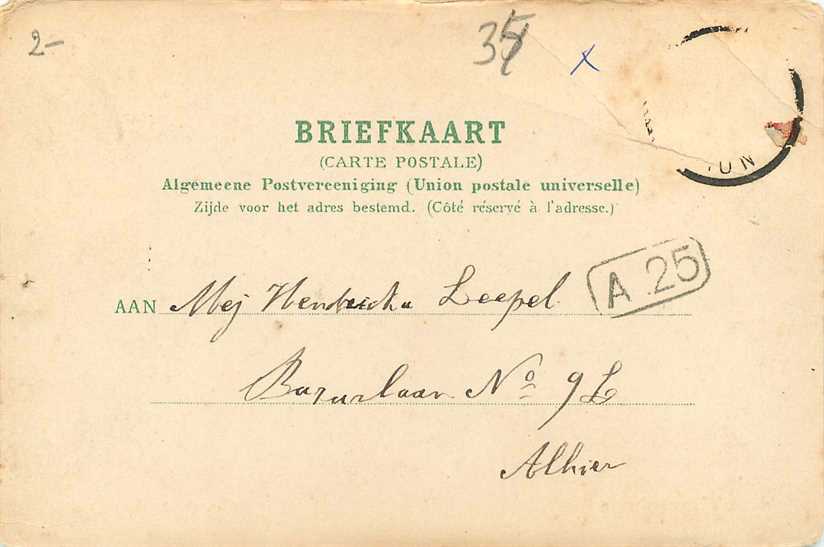 2-
35
x
BRIEFKAART
(CARTE POSTALE)
Algemeene Postvereeniging (Union postale universelle)
Zijde voor het adres bestemd. (Côté réservé à l'adresse.)
AAN Mej Hendricka Leepel
A 25
Bazarlaan No 9
Alhier